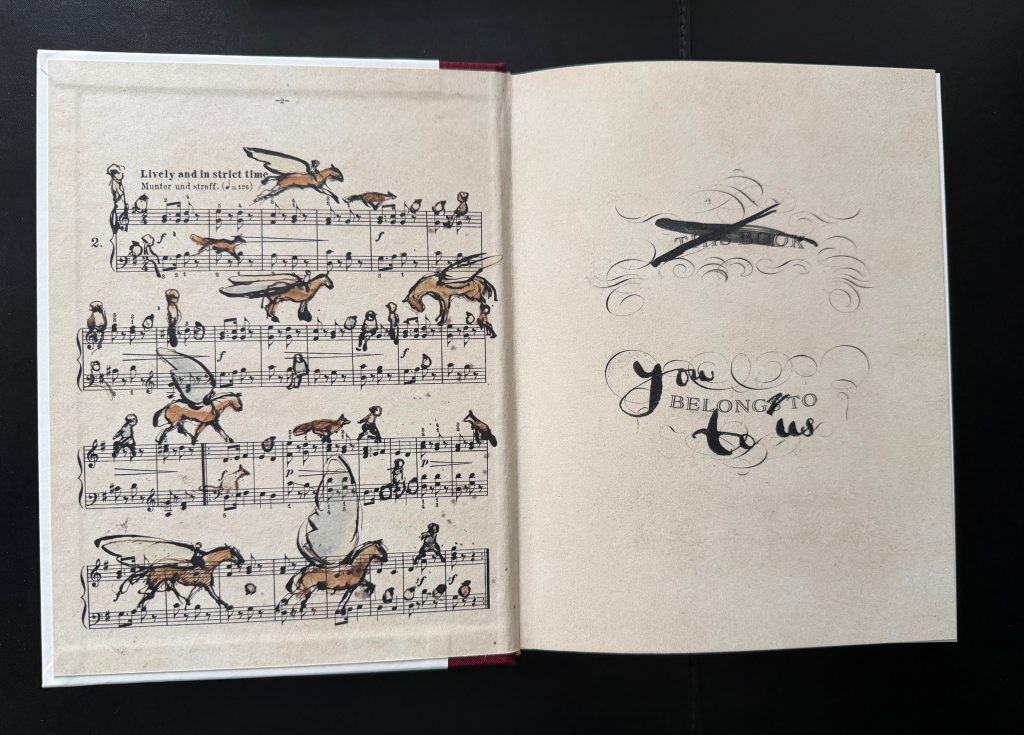 -2-
Lively and in strict time.
Munter und straff. (♩=126)
2.
f
f
f
f
p
p
sf
sf
THIS BOOK
you
BELONGS TO
to us